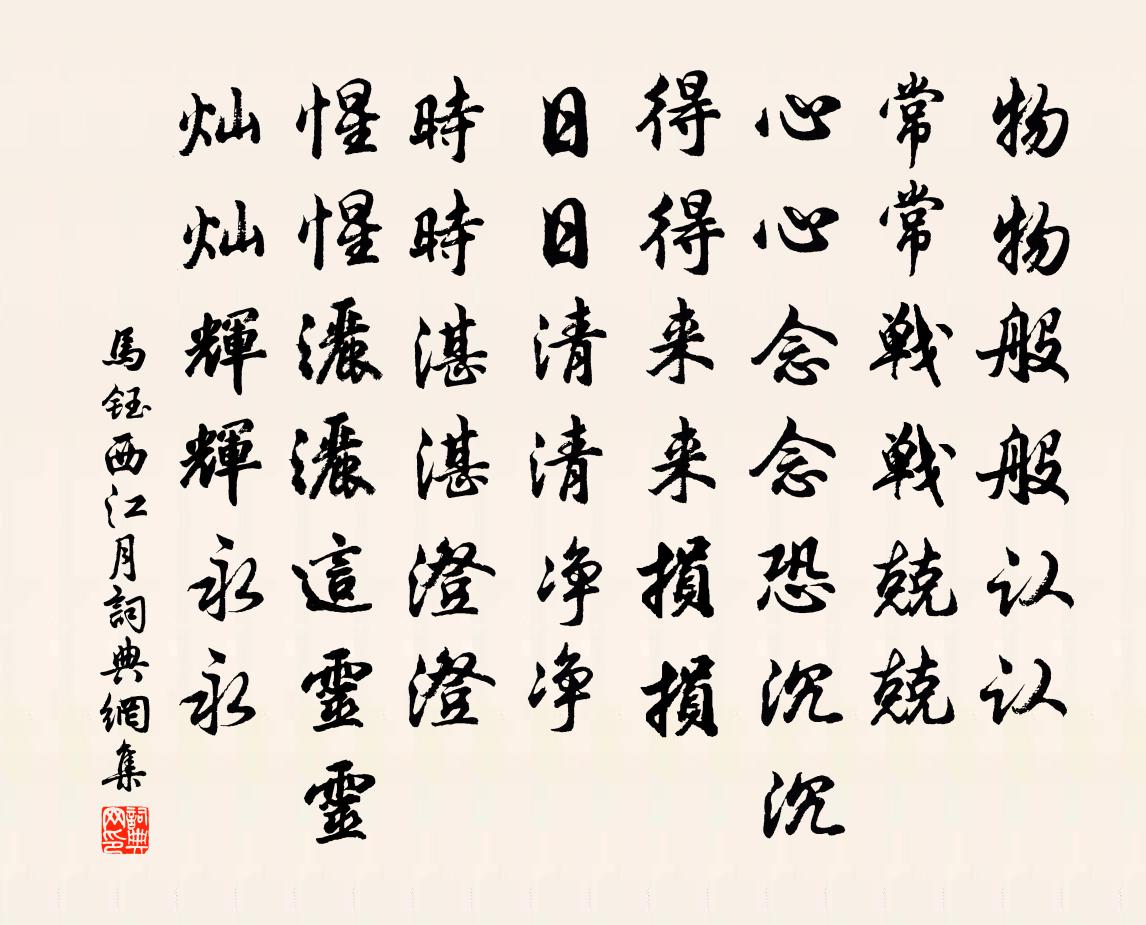 物物般般认认
常常戦戦兢兢
心心念念恐沉沉
得得来来損損
日日清清净净
時時湛湛澄澄
惺惺灑灑這靈靈
灿灿輝輝永永
馬鈺西江月詞典網集
詞典网印